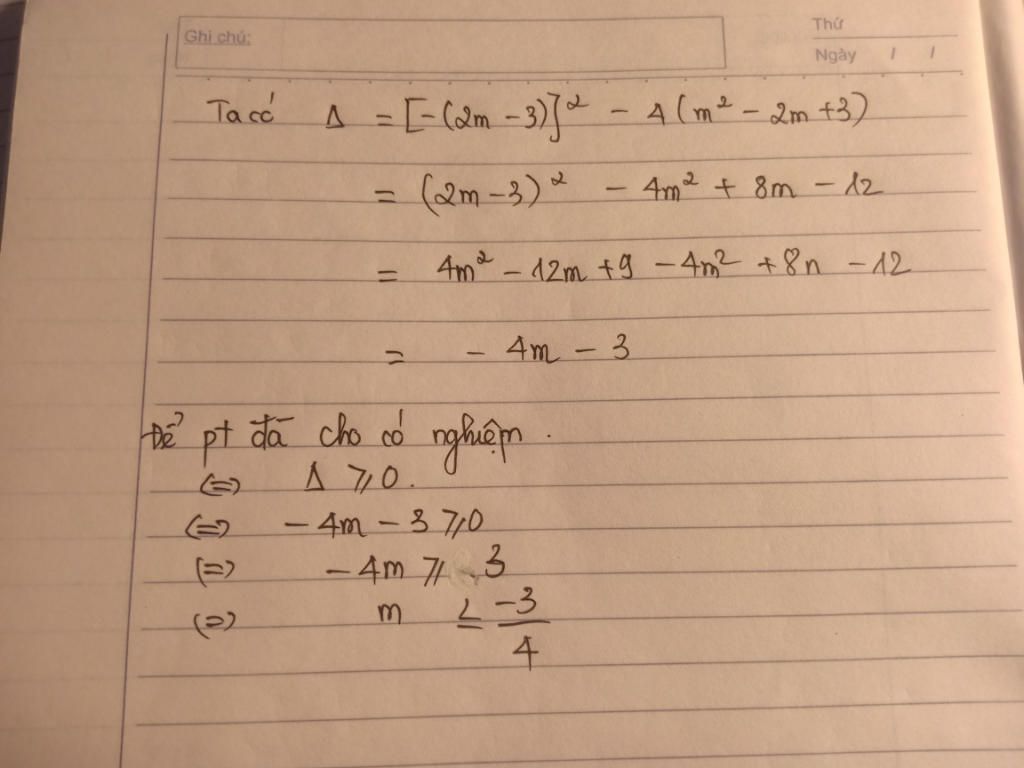 Ghi chú:
Thứ
Ngày / /
Ta có Δ = [-(2m - 3)]² - 4(m² - 2m + 3)
= (2m - 3)² - 4m² + 8m - 12
= 4m² - 12m + 9 - 4m² + 8n - 12
= - 4m - 3
Để pt đã cho có nghiệm.
(=) Δ ⩾ 0.
(=) - 4m - 3 ⩾ 0
(=) - 4m ⩾ 3
(=) m ≤ -3/4